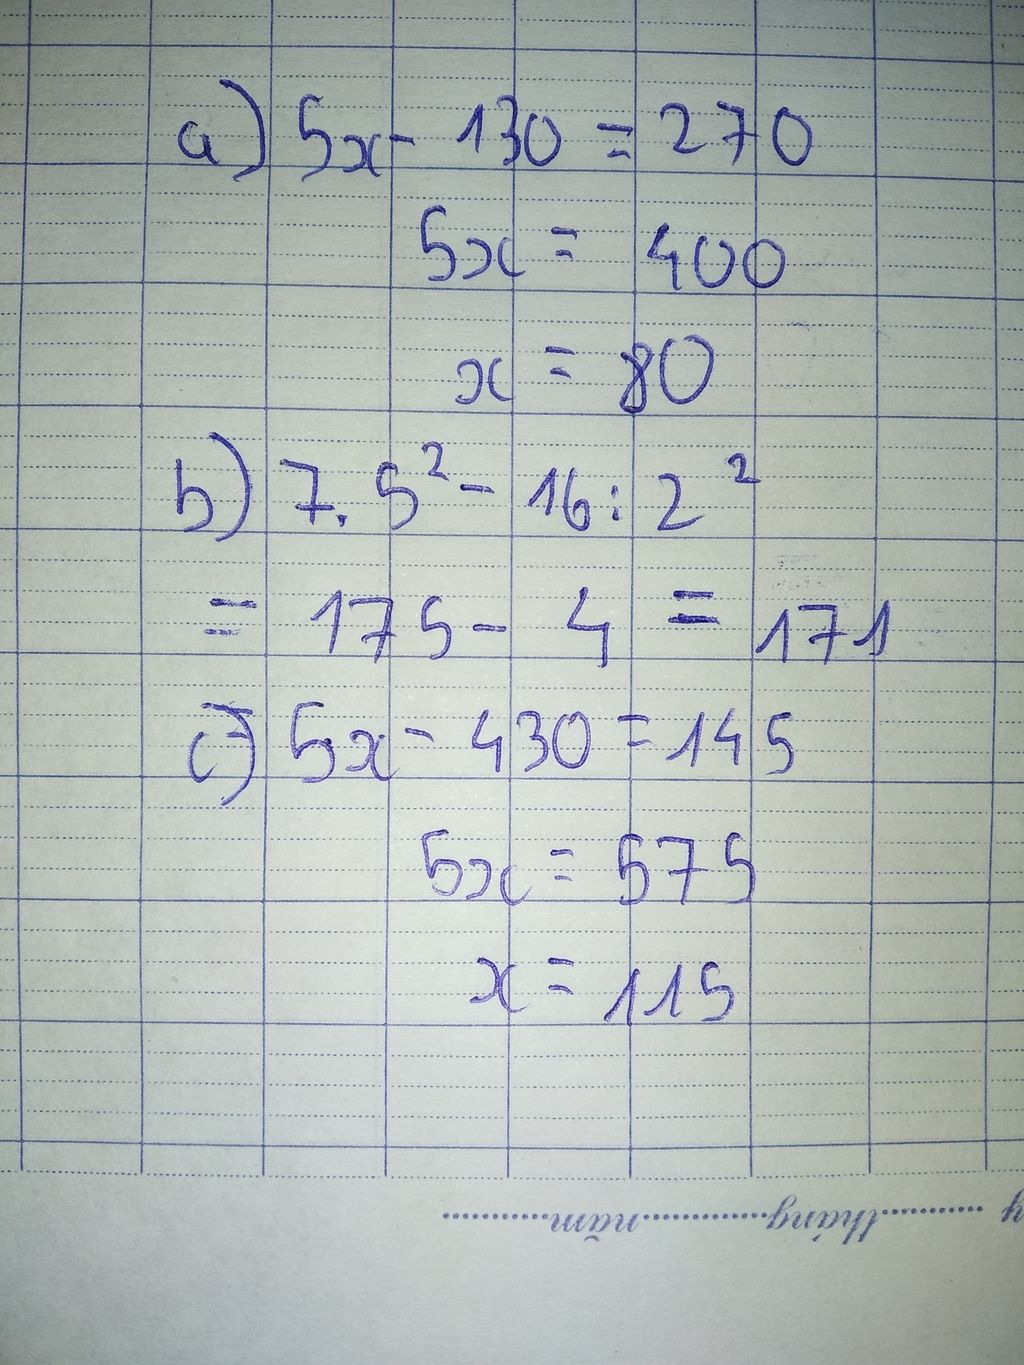 a) 5x - 130 = 270
5x = 400
x = 80
b) 7. 5² - 16 : 2²
= 175 - 4 = 171
c) 5x - 430 = 145
5x = 575
x = 115
y ........... tháng ............. năm ...........